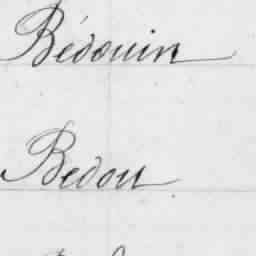 Bédouin
Bedou